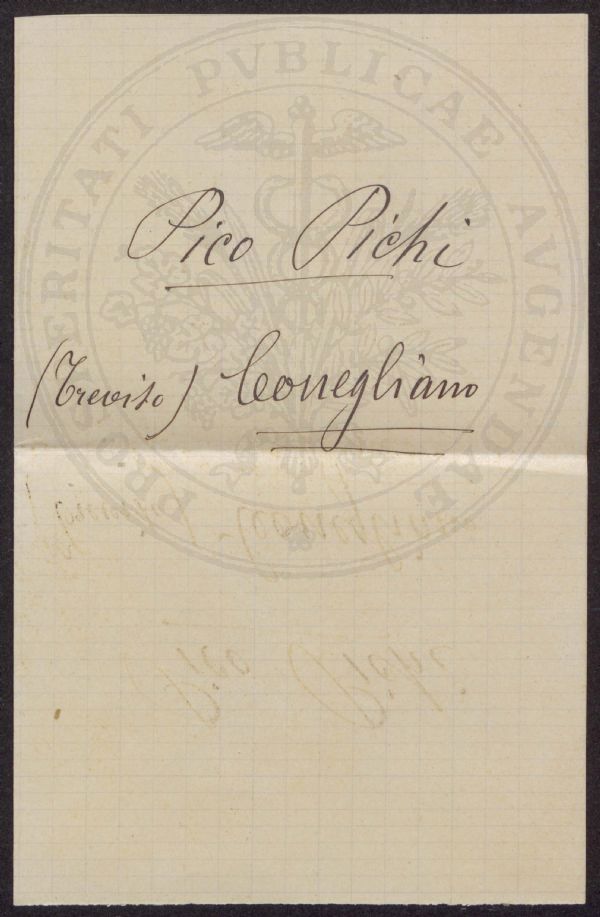 PROSPERITATI PVBLICAE AVGENDAE
Pico Pichi
(Treviso) Conegliano